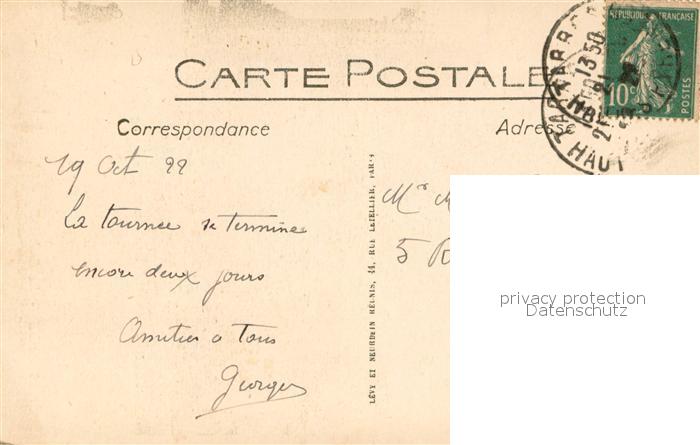 CARTE POSTALE
Correspondance
Adresse
RÉPUBLIQUE FRANÇAISE
10c
POSTES
13 50
21
HAUT
19 Oct 22
La tournee se termine
encore deux jours
Amities a tous
Georges
LÉVY ET NEURDEIN RÉUNIS, 44, RUE LETELLIER, PARIS
Mr M
5 R
privacy protection
Datenschutz